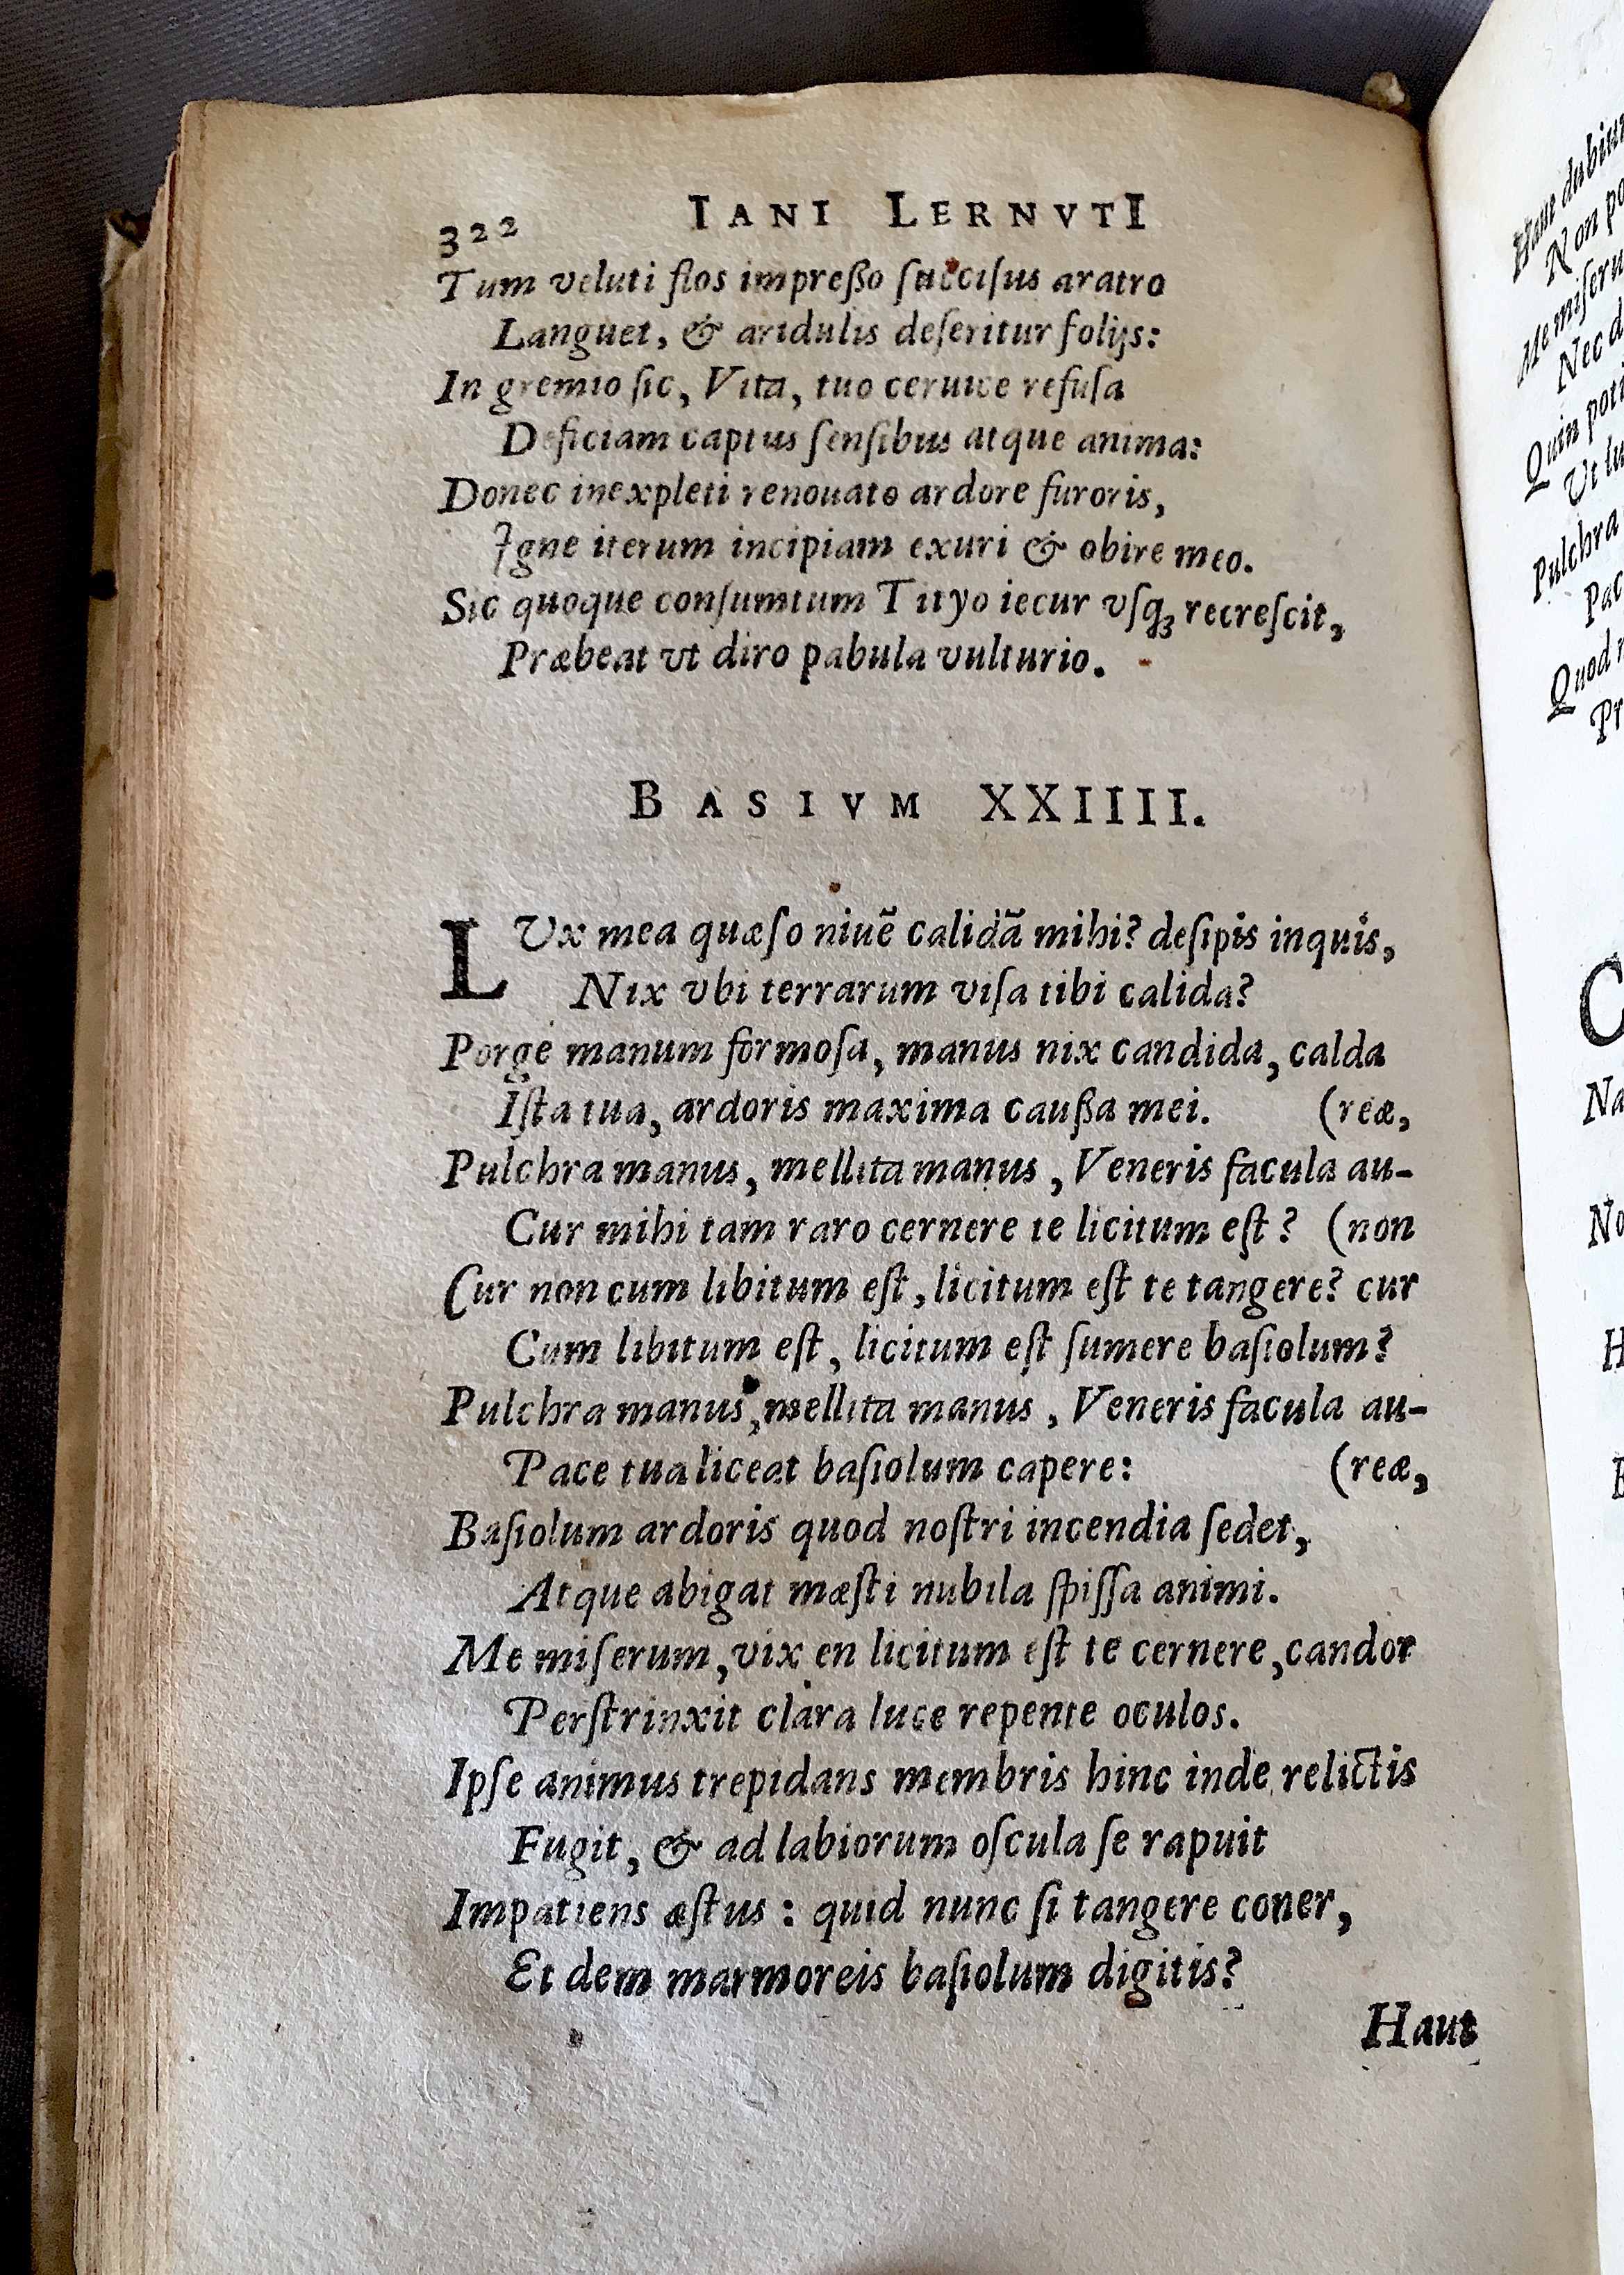 322 IANI LERNVTI
Tum veluti flos impreßo ſucciſus aratro
Languet, & aridulis deſeritur folijs:
In gremio ſic, Vita, tuo ceruice refuſa
Deficiam captus ſenſibus atque anima:
Donec inexpleti renouato ardore furoris,
Igne iterum incipiam exuri & obire meo.
Sic quoque conſumtum Tityo iecur vſq; recreſcit,
Præbeat vt diro pabula vulturio.
BASIVM XXIIII.
LVx mea quæſo niuẽ calidã mihi? deſipis inquis,
Nix vbi terrarum viſa tibi calida?
Porge manum formoſa, manus nix candida, calda
Iſta tua, ardoris maxima caußa mei. (reæ,
Pulchra manus, mellita manus, Veneris facula au-
Cur mihi tam raro cernere te licitum eſt? (non
Cur non cum libitum eſt, licitum eſt te tangere? cur
Cum libitum eſt, licitum eſt ſumere baſiolum?
Pulchra manus, mellita manus, Veneris facula au-
Pace tua liceat baſiolum capere: (reæ,
Baſiolum ardoris quod noſtri incendia ſedet,
Atque abigat mæſti nubila ſpiſſa animi.
Me miſerum, vix en licitum eſt te cernere, candor
Perſtrinxit clara luce repente oculos.
Ipſe animus trepidans membris hinc inde relictis
Fugit, & ad labiorum oſcula ſe rapuit
Impatiens æſtus: quid nunc ſi tangere coner,
Et dem marmoreis baſiolum digitis?
Haut
Haut dubium
Non po
Me miſeru
Nec d
Quin poti
Vt lu
Pulchra
Pac
Quod
Pr
C
Na
No
H